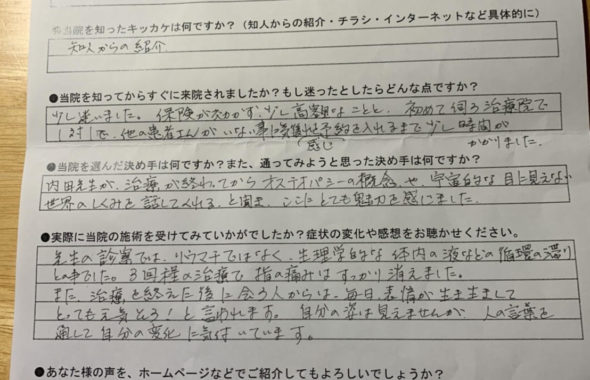 ●当院を知ったキッカケは何ですか？（知人からの紹介・チラシ・インターネットなど具体的に）
知人からの紹介
●当院を知ってからすぐに来院されましたか？もし迷ったとしたらどんな点ですか？
少し迷いました。保険が効かず少し高額なことと、初めて伺う治療院で
1対1で、他の患者さんがいない事に気遅れを予約を入れるまで少し時間が
感じ
かかりました。
●当院を選んだ決め手は何ですか？また、通ってみようと思った決め手は何ですか？
内田先生が、治療が終わってからオステオパシーの概念や、宇宙的な目に見えない
世界のしくみを話してくれる、と聞き、ここにとても魅力を感じました。
●実際に当院の施術を受けてみていかがでしたか？症状の変化や感想をお聴かせください。
先生の診察では、リウマチではなく、生理学的な体内の液などの循環の滞り
との事でした。3回程の治療で指の痛みはすっかり消えました。
また、治療を終えた後に会う人からは、毎日、表情が生き生きして
とっても元気そう！と言われます。自分の姿は見えませんが、人の言葉を
通して自分の変化に気付いています。
●あなた様の声を、ホームページなどでご紹介してもよろしいでしょうか？